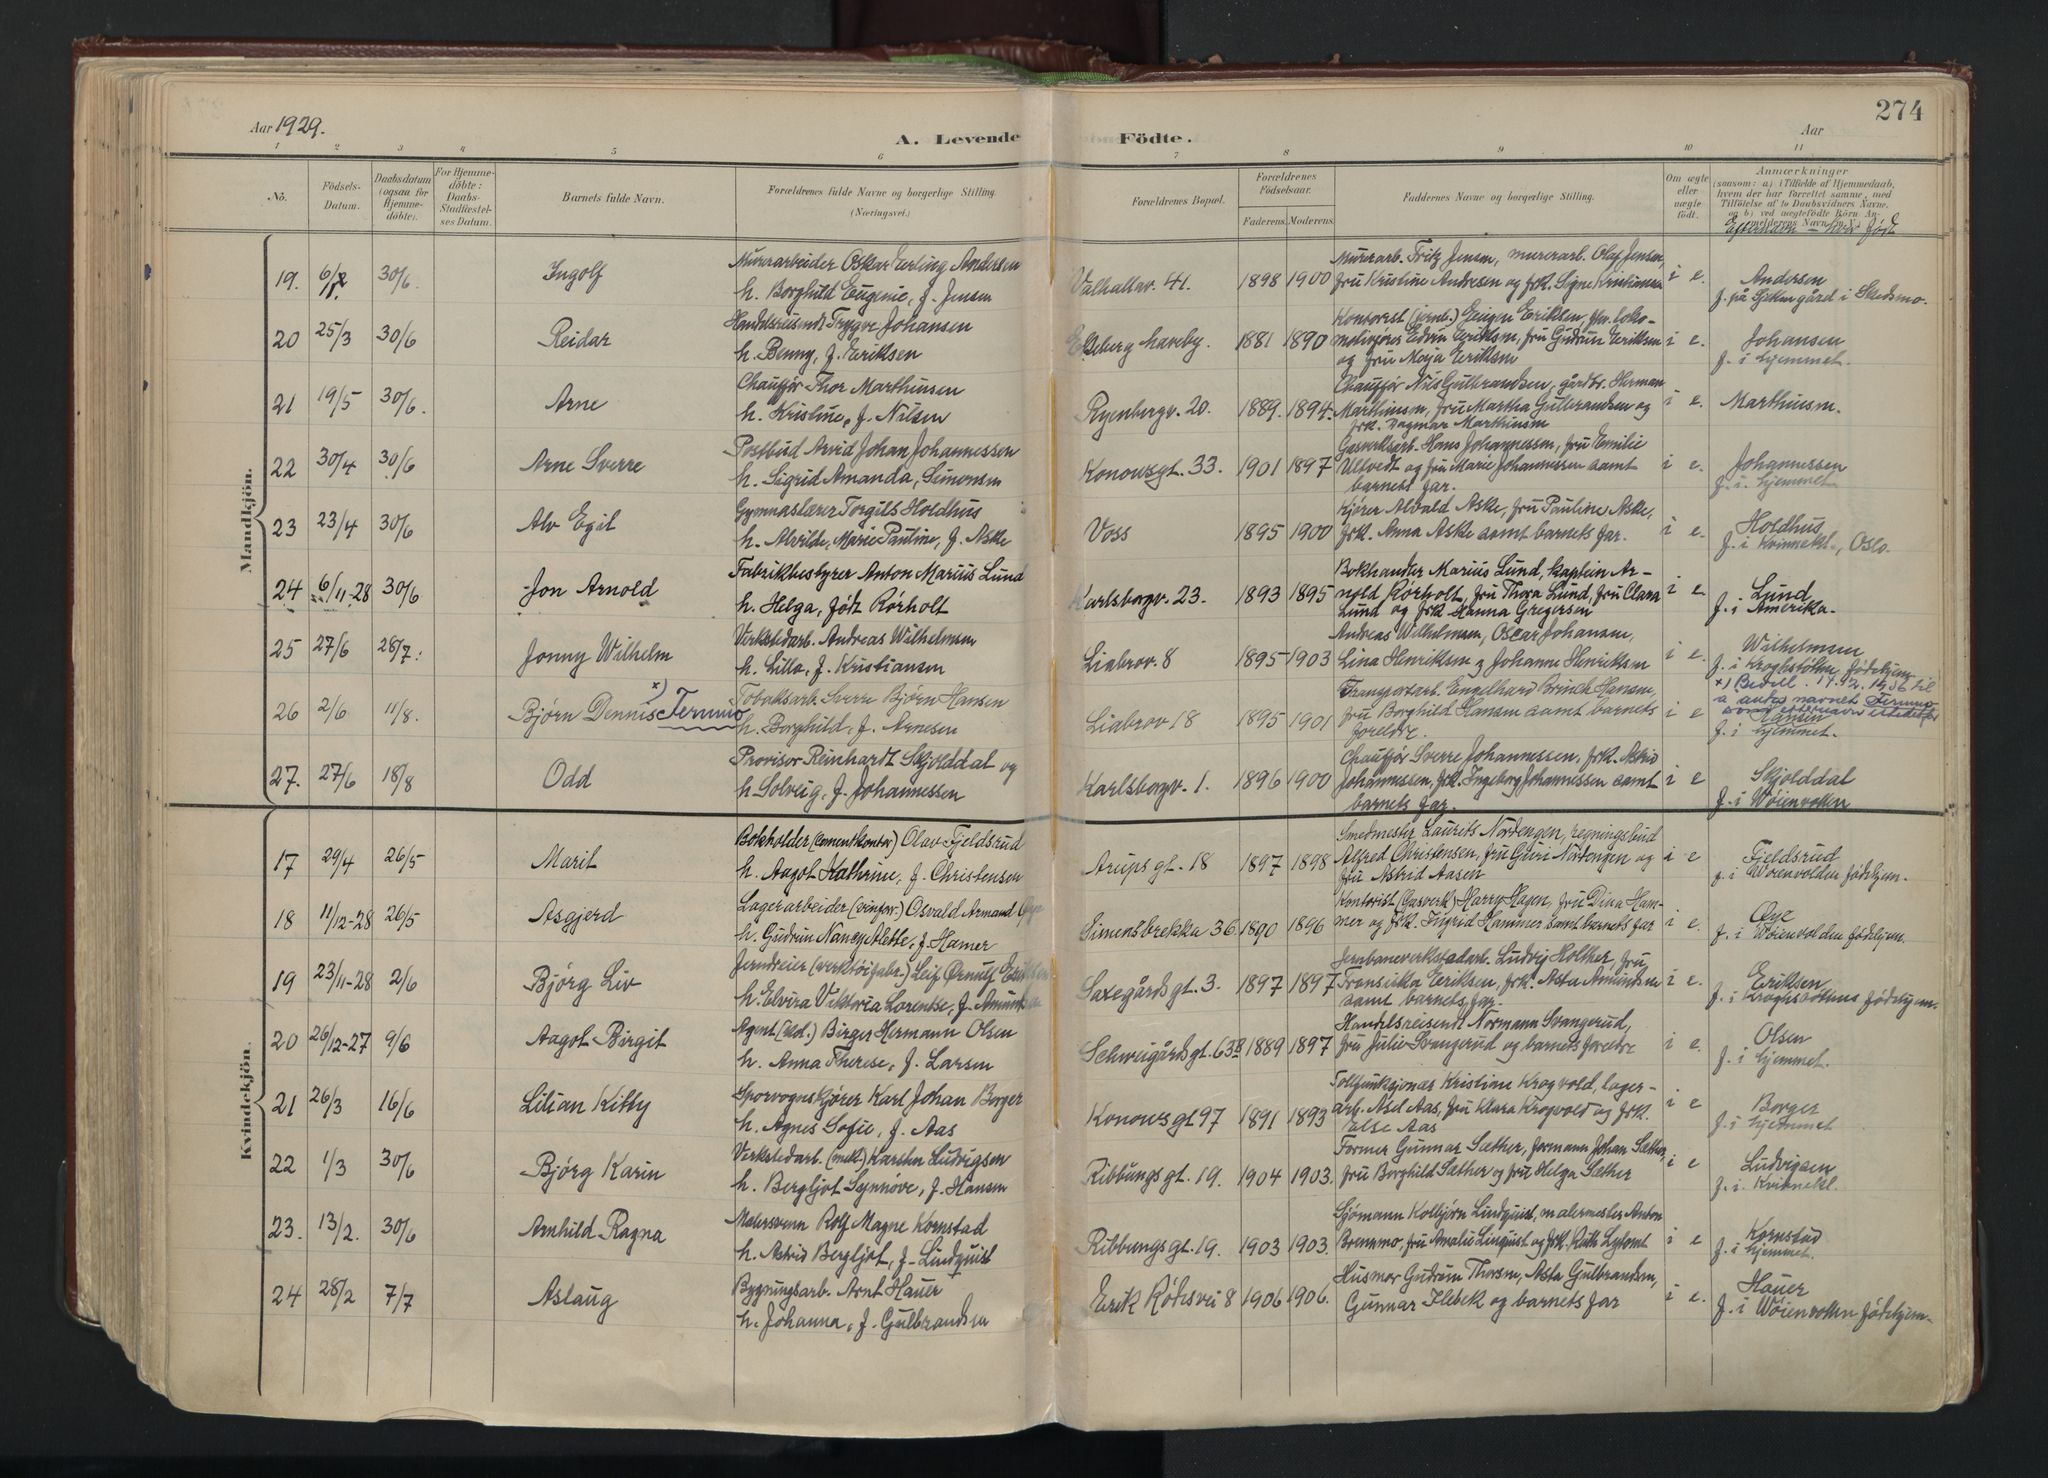 274
Aar 1929.
A. Levende Födte.
Aar
1 2 3 4 5 6 7 8 9 10 11
No.
Födsels-Datum.
Daabsdatum (ogsaa for Hjemme-döbte).
For Hjemme-döbte: Daabs-Stadfæstel-ses Datum.
Barnets fulde Navn.
Forældrenes fulde Navne og borgerlige Stilling.
(Næringsvei.)
Forældrenes Bopæl.
Forældrenes Födselsaar.
Faderens. Moderens.
Faddernes Navne og borgerlige Stilling.
Om ægte eller uægte født.
Anmærkninger
(saasom: a) i Tilfælde af Hjemmedaab,
hvem der har forrettet samme, med
Tilföielse af to Daabsvidners Navne,
og b) ved uægtefödte Börn An-
melderens Navn m. V.)
Efternavn - hvor född
Mandkjön.
19. 30/6. Ingolf
Murerarbeider Oskar Erling Andersen
h. Borghild Eugenie, f. Jensen
Valhallav. 41. 1898 1900
Murerarb. Fritz Jensen, murerarb. Olaf Jensen,
fru Kristine Andresen og frk. Signe Kristiansen
i e. Andersen
f. på gård i Skedsmo.
20 25/3 30/6 Reidar
Handelsreisende Trygve Johansen
h. Benny, f. Eriksen
Ekeberg haveby. 1881 1890
Kontorist (jernb.) Eriksen, fhv. loko-
motivfører Edvin Eriksen, fru Gudrun Eriksen
og fru Maja Eriksen
i e. Johansen
f. i hjemmet.
21 19/5 30/6. Arne
Chauffør Thor Marthinsen
h. Kristine, f. Nilsen
Ryenbergv. 20. 1889. 1894.
Chauffør Nils Gulbrandsen, gårdbr. Herman
Marthinsen, fru Martha Gulbrandsen og
frk. Dagmar Marthinsen
i e. Marthinsen.
22 30/4 30/6 Arne Sverre
Postbud Arvid Johan Johannessen
h. Sigrid Amanda, Simonsen
Konowsgt. 33. 1901 1897
Gasverksarb. Hans Johannessen, fru Emilie
Ulfvedt og fru Marie Johannessen samt
barnets far.
i e. Johannessen
f. i hjemmet
23 23/4 30/6 Alv Egil
Gymnastlærer Torgils Holdhus
h. Alvilde, Marie Pauline, f. Aske
Voss 1895 1900
Kjører Alvald Aske, fru Pauline Aske,
frk. Anna Aske samt barnets far.
i e. Holdhus
f. i Kvinnekl., Oslo.
24 6/11-28 30/6 Jon Arnold
Fabrikkbestyrer Anton Marius Lund
h. Helga, født Rørholt
Karlsborgv. 23. 1893 1895
Bokhandler Marius Lund, kaptein Ar-
nold Rørholt, fru Thora Lund, fru Clara
Lund og frk. Hanna Gregersen
i e. Lund
f. i Amerika.
25 27/6 28/7. Jonny Wilhelm
Verkstedarb. Andreas Wilhelmsen
h. Lilla, f. Kristiansen
Liabrov. 8 1895 1903
Andreas Wilhelmsen, Oscar Johansen,
Lina Henriksen og Johanne Henriksen
i e. Wilhelmsen
f. i Kroghstøtten fødehjem
26 2/6 11/8. Bjørn Dennis x) Fernmo
Tobaksarb. Sverre Bjørn Hansen
h. Borghild, f. Arnesen
Liabrov 18 1895 1901
Transportarb. Engelhard Brinch Hansen,
fru Borghild Hansen samt barnets
foreldre.
i e
x) Bevill. til
å anta navnet Fernmo
som efternavn istedetfor
Hansen
f. i hjemmet.
27. 27/6 18/8 Odd
Provisor Reinhardt Skjolddal og
h. Solveig, f. Johannessen
Karlsborgv. 1. 1896 1900
Chauffør Sverre Johannessen, frk. Astrid
Johannessen, frk. Ingeborg Johannessen samt
barnets far.
i e Skjolddal
f. i Wøienvollen
Kvindekjön.
17 29/4 26/5 Marit
Bokholder (Cementkontor) Olav Fjeldsrud
h. Aagot Kathrine, f. Christensen
Arups gt. 18 1897 1898
Smedmester Laurits Nordengen, regningsbud
Alfred Christensen, fru Guri Nordengen og
fru Astrid Aasen
i e Fjeldsrud
f. i Wøienvolden fødehjem.
18 11/12-28 26/5 Asgjerd
Lagerarbeider (vinforr.) Osvald Armand Øye
h. Gudrun Nancy Alette, f. Hamer
Simensbrekka 36. 1890 1896
Kontorist (Gasverk) Harry Hagen, fru Dina Ham-
mer og frk. Ingrid Hammer samt barnets far
i e. Øye
f. i Wøienvolden fødehjem.
19 23/11-28 2/6 Bjørg Liv
Jerndreier (verktøifabr.) Leif Ørnulf Eriksen
h. Elvira Viktoria Lorentse, f. Amundsen
Saxegårds gt. 3. 1897 1897
Jernbaneverkstadarb. Ludvig Holther, fru
Fransiska Eriksen, frk. Asta Amundsen
samt barnets far.
i e. Eriksen
f. i Kroghstøttens fødehjem.
20 26/12-27 9/6 Aagot Birgit
Agent Birger Hermann Olsen
h. Anna Therese, f. Larsen
Schweigårds gt. 63B 1889 1897
Handelsreisende Normann Svangerud,
fru Julie Svangerud og barnets foreldre
i e. Olsen
f. i hjemmet.
21 26/3 16/6 Lilian Kitty
Sporvognskjører Karl Johan Borger
h. Agnes Sofie, f. Aas
Konows gt 97 1891 1893
Tollfunksjonær Kristian Krogvold, lager-
arb. Asel Aas, fru Klara Krogvold og frk.
Else Aas
i e Borger
f. i hjemmet
22 1/3 30/6 Bjørg Karin
Verkstedarb. (mek.) Karsten Ludvigsen
h. Bergljot Synnøve, f. Hansen
Ribbungs gt. 19. 1904 1903.
Former Gunnar Sæther, formann Johan Sæther,
fru Borghild Sæther og fru Helga Sæther
i e Ludvigsen
f. i. Kvinnekl.
23. 13/2. 30/6 Arnhild Ragna
Malersvenn Rolf Magne Kornstad
h. Astrid Bergljot, f. Lindquist
Ribbungs gt. 19. 1903 1903.
Sjømann Kolbjørn Lindquist, malermester Anton
Bremmo, fru Amalie Linquist og frk. Ruth
i e Kornstad
f. i hjemmet.
24 28/2 7/7 Aslaug
Bygningsarb. Arnt Hauer
h. Johanna, f. Gulbrandsen
Erik Rotsvei 8 1906 1906.
Husmor Gudrun Thorsen, Asta Gulbrandsen,
Gunnar Ilebek og barnets far
i e. Hauer
f. i Wøienvollen fødehjem.